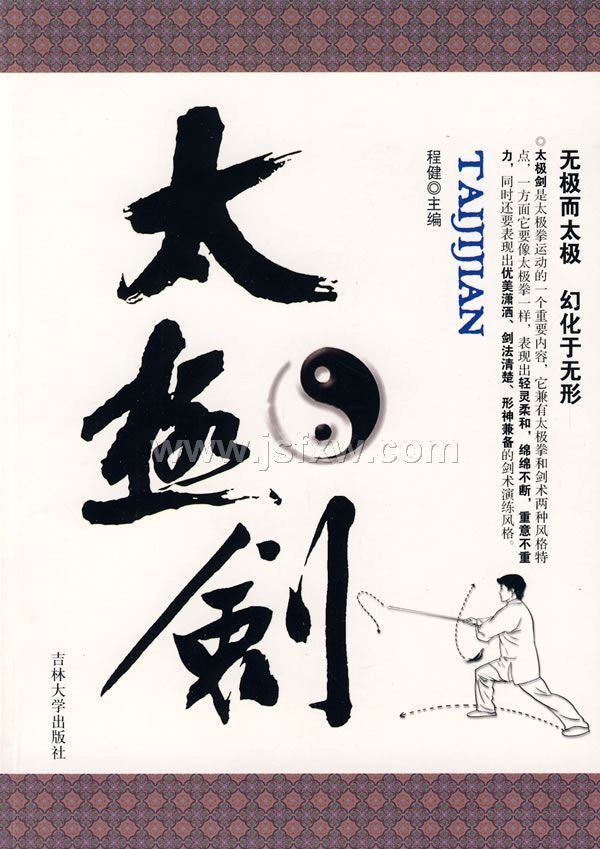 无极而太极 幻化于无形
◎太极剑是太极拳运动的一个重要内容，它兼有太极拳和剑术两种风格特
点，一方面它要像太极拳一样，表现出轻灵柔和，绵绵不断，重意不重
力，同时还要表现出优美潇洒、剑法清楚、形神兼备的剑术演练风格。
TAIJIJIAN
程健◎主编
太極劍
吉林大学出版社
www.jsfxw.com